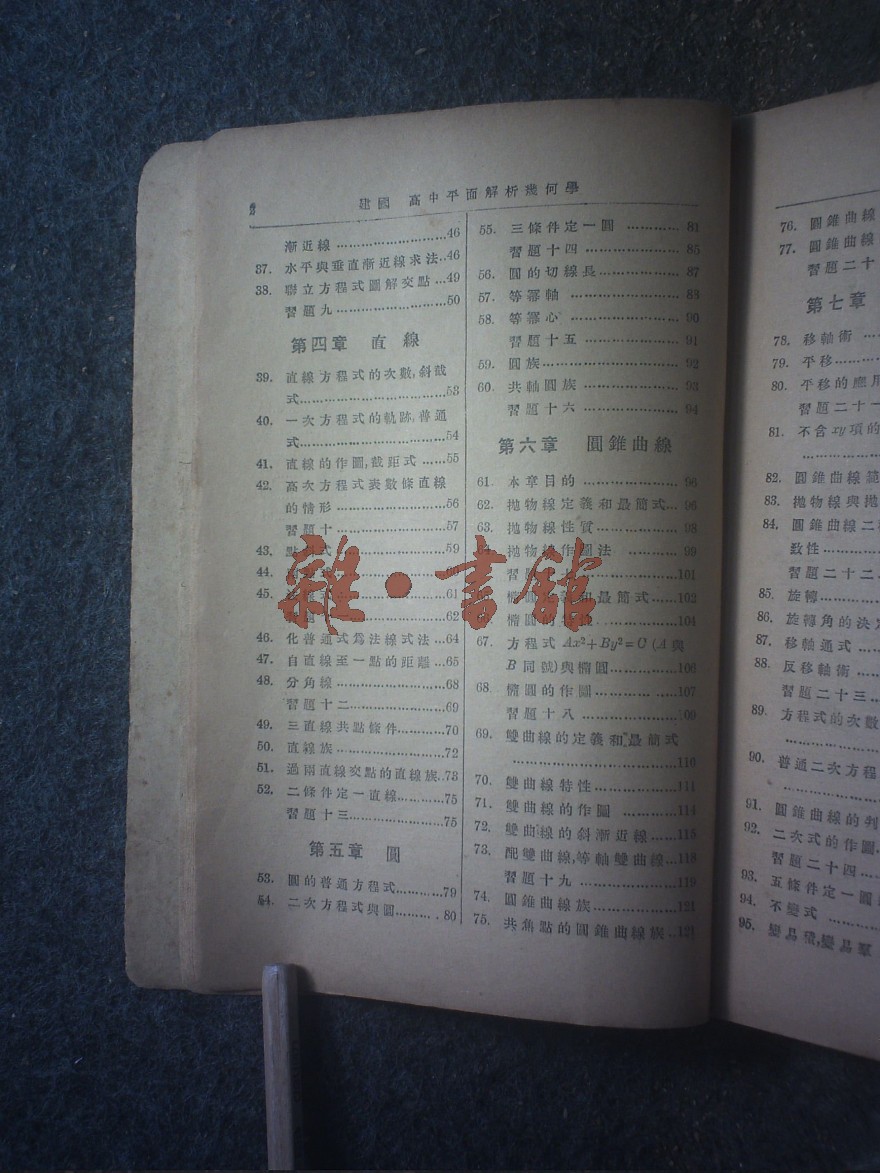 2
建國 高中平面解析幾何學
漸近線 ……………………46
37. 水平與垂直漸近線求法..46
38. 聯立方程式圖解交點…49
習題九……………………50
第四章 直線
39. 直線方程式的次數,斜截
式……………………………53
40. 一次方程式的軌跡,普通
式……………………………54
41. 直線的作圖,截距式 ……55
42. 高次方程式表數條直線
的情形……………………56
習題十……………………57
43. 點 式……………………59
44.
45. 61
62
46. 化普通式爲法線式法…64
47. 自直線至一點的距離…65
48. 分角線……………………68
習題十二…………………69
49. 三直線共點條件…………70
50. 直線族……………………72
51. 過兩直線交點的直線族..73
52. 二條件定一直線…………75
習題十三…………………75
第五章 圓
53. 圓的普通方程式…………79
54. 二次方程式與圓…………80
55. 三條件定一圓 …………81
習題十四…………………85
56. 圓的切線長………………87
57. 等冪軸 …………………88
58. 等冪心……………………90
習題十五…………………91
59. 圓族………………………92
60. 共軸圓族…………………93
習題十六…………………94
第六章 圓錐曲線
61. 本章目的…………………96
62. 拋物線定義和最簡式…96
63. 拋物線性質………………98
拋物線作圖法 …………99
習題 ……………………101
橢圓 和最簡式……102
橢圓的 …………………104
67. 方程式 Ax²+By²=C (A與
B同號)與橢圓……………106
68. 橢圓的作圖………………107
習題十八…………………109
69. 雙曲線的定義和最簡式
……………………………110
70. 雙曲線特性………………111
71. 雙曲線的作圖 …………114
72. 雙曲線的斜漸近線……115
73. 配雙曲線,等軸雙曲線…118
習題十九…………………119
74. 圓錐曲線族………………121
75. 共焦點的圓錐曲線族…121
76. 圓錐曲線
77. 圓錐曲線
習題二十
第七章
78. 移軸術
79. 平移………
80. 平移的應用
習題二十一
81. 不含xy項的
82. 圓錐曲線
83. 拋物線與拋
84. 圓錐曲線二
致性…………
習題二十二
85. 旋轉…………
86. 旋轉角的決定
87. 移軸通式
88. 反移軸術
習題二十三
89. 方程式的次數
90. 普通二次方程
91. 圓錐曲線的判
92. 二次式的作圖
習題二十四
93. 五條件定一圓
94. 不變式
95. 變品
雜·書館